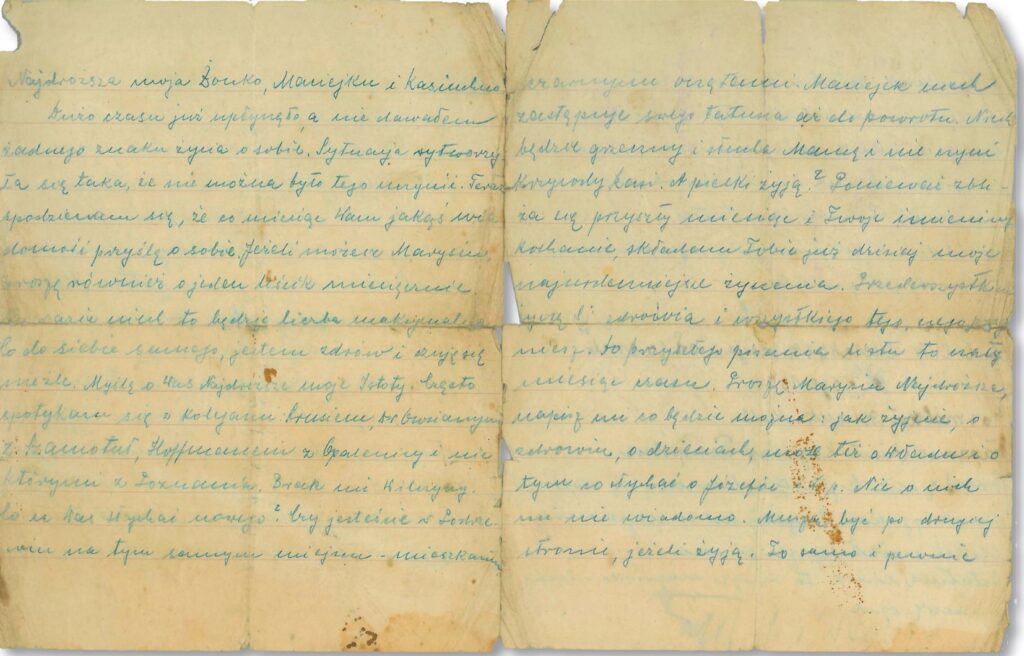 Najdroższa moja Żonko, Maniejku i Kasiuchno
Dużo czasu już upłynęło, a nie dawałem
żadnego znaku życia o sobie. Sytuacja wytworzy
ła się taka, że nie można było tego uczynić. Teraz
spodziewam się, że co miesiąc Wam jakąś wia
domość prześlę o sobie. Jeżeli możesz Marysiu,
proszę również o jeden liścik miesięcznie.
razie niech to będzie liczba maksymalna
Co do siebie samego, jestem zdrów i czuję się
nieźle. Myślę o Was Najdroższe moje Istoty. Często
spotykam się z kolegami: Dr
z Szamotuł, Hoffmanem z Opalenicy i nie
którymi z Poznania. Brak mi
Co u Was słychać nowego? Czy jesteście w
na tym samym miejscu - mieszkaniu
czarnym oczętami. Maniejek niech
zastępuje swego tatusia aż do powrotu. Niech
będzie grzeczny i słucha Mamę i nie czyni
krzywdy Kasi. A pieski żyją? Ponieważ zbli-
ża się przyszły miesiąc i Twoje imieniny
kochanie, składam Tobie już dzisiaj moje
najserdeczniejsze życzenia. Przedewszystkim
życzę Ci zdrowia i wszystkiego tego, czego
Do przyszłego pisania listu to cały
miesiąc czasu. Proszę Marysiu Najdroższa,
napisz mi co będzie można: jak żyjecie, o
zdrowiu, o dzieciach, może też o Władzi i o
tym co słychać o Józefie i Nic o nich
mi nie wiadomo. Muszą być po drugiej
stronie, jeżeli żyją. To samo i pewnie